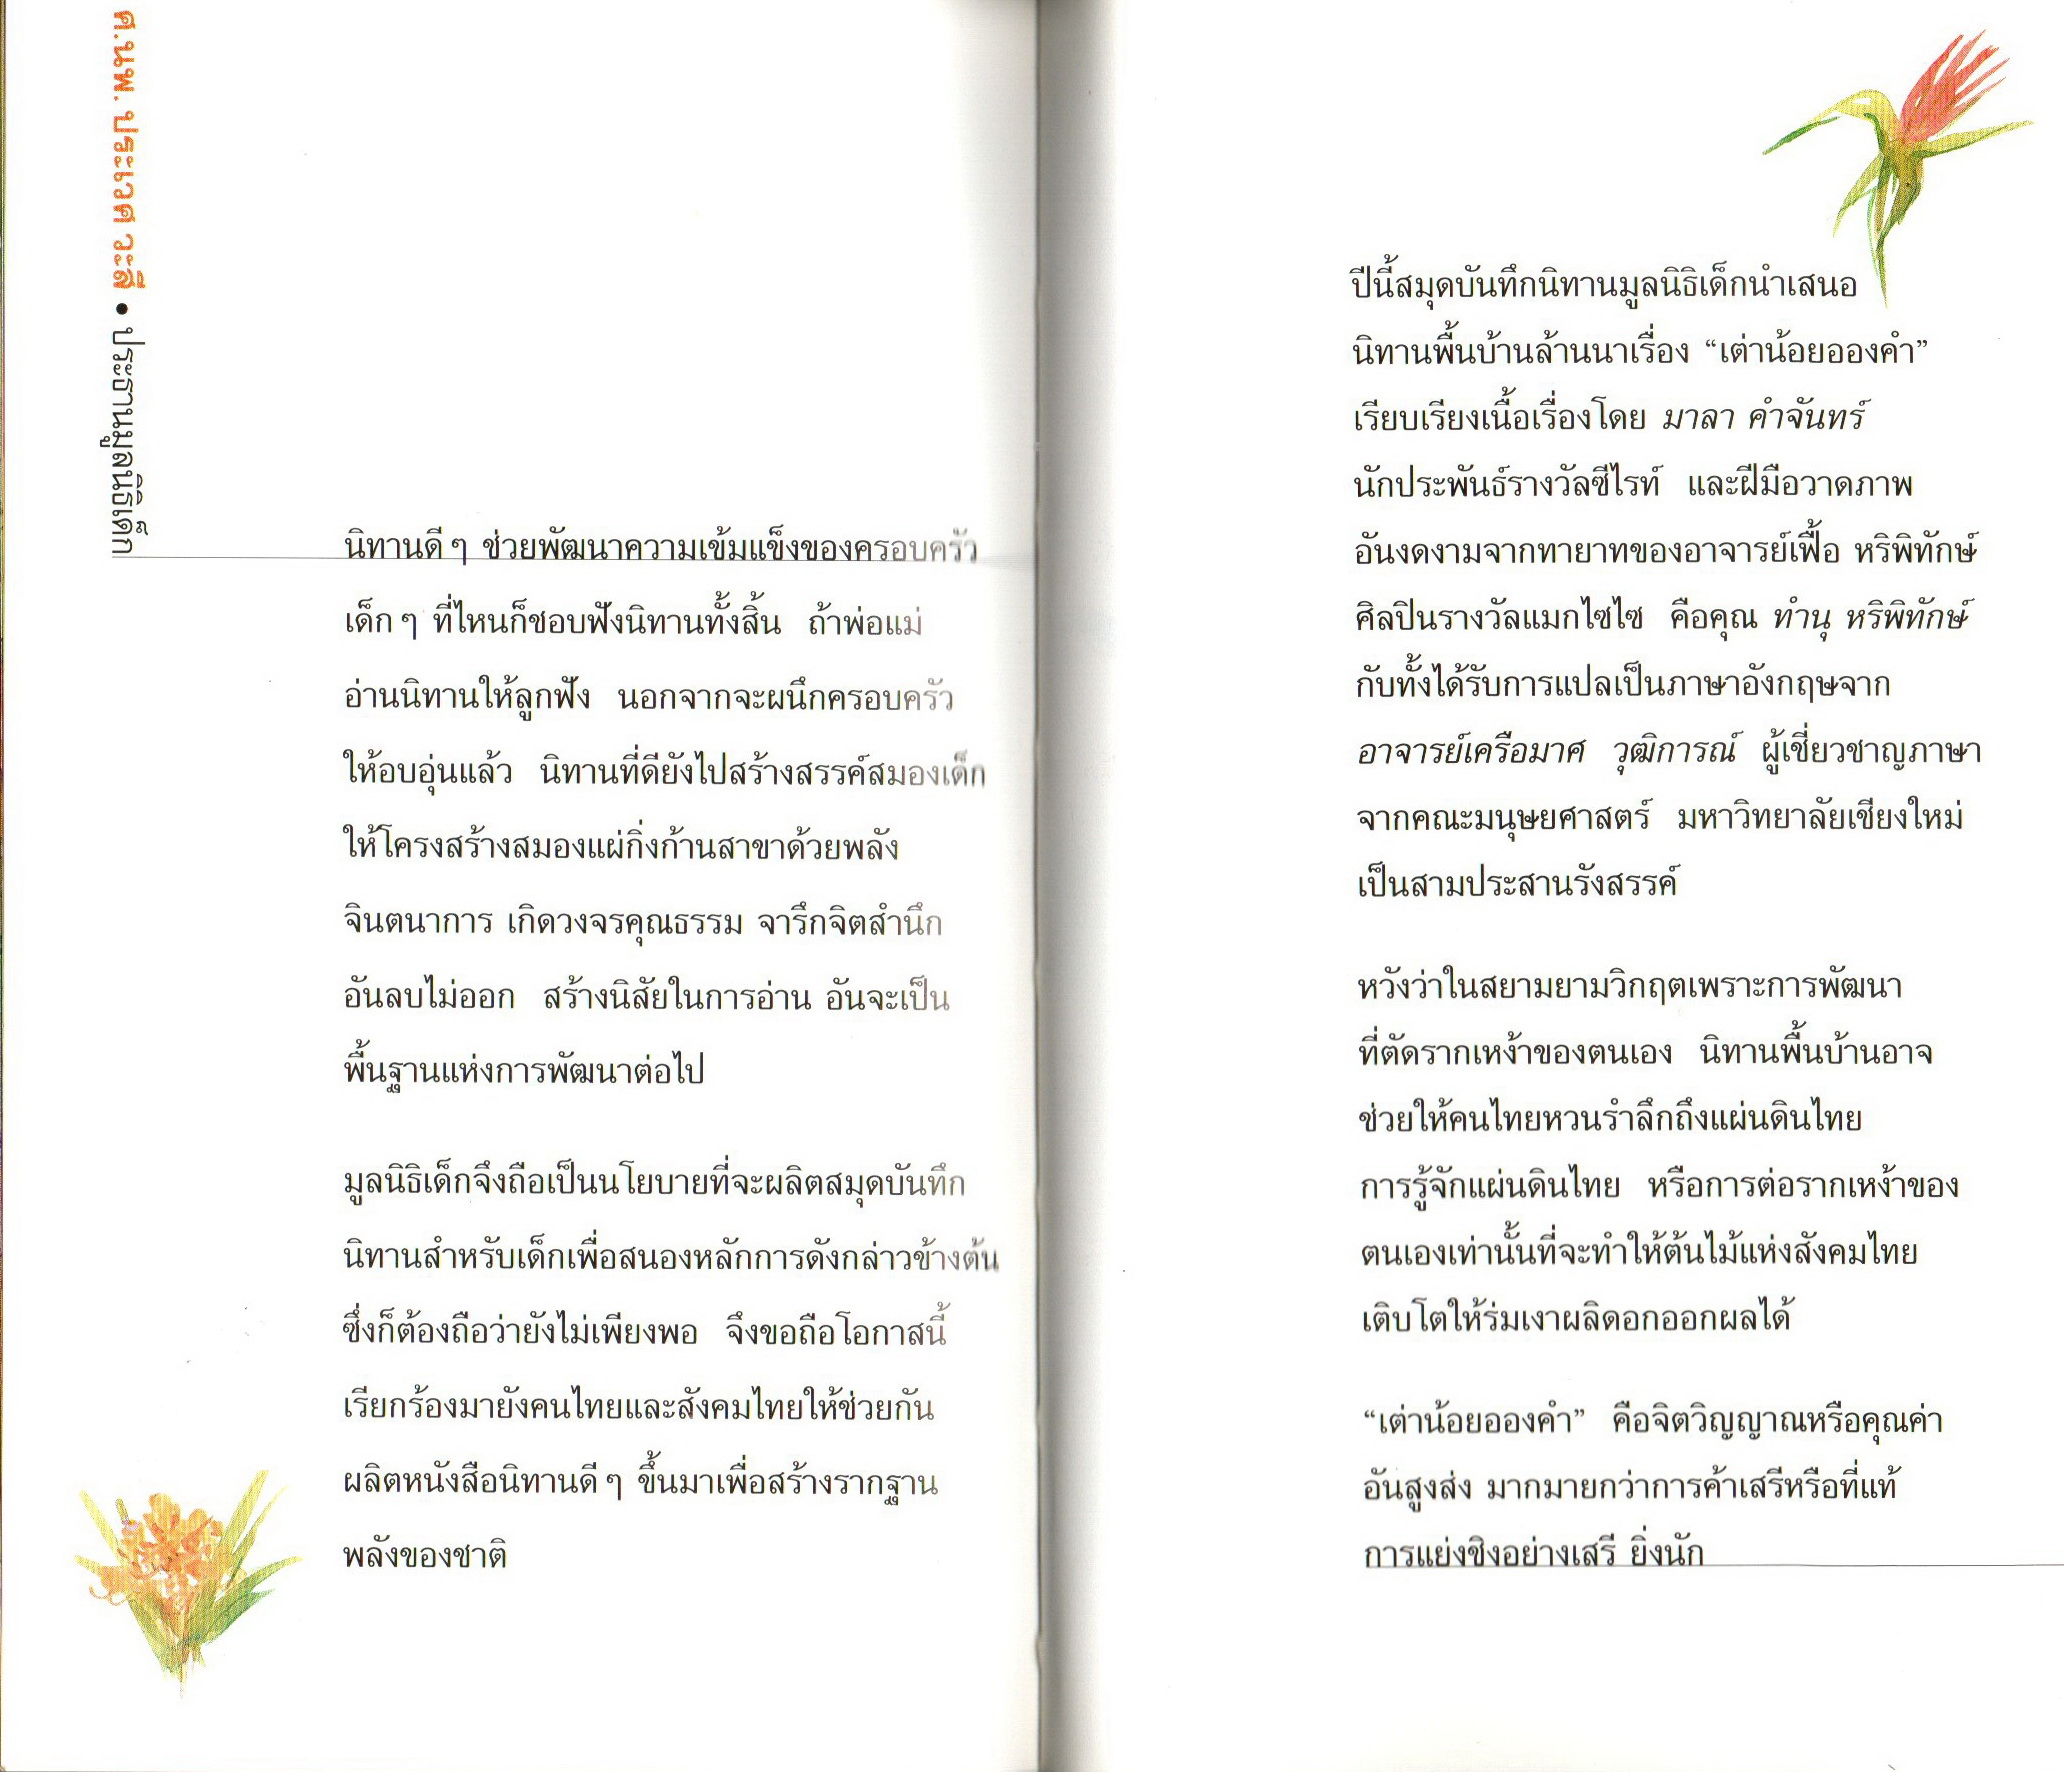 ศ.นพ. ประเวศ วะสี • ประธานมูลนิธิเด็ก
นิทานดี ๆ ช่วยพัฒนาความเข้มแข็งของครอบครัว
เด็ก ๆ ที่ไหนก็ชอบฟังนิทานทั้งสิ้น ถ้าพ่อแม่
อ่านนิทานให้ลูกฟัง นอกจากจะผนึกครอบครัว
ให้อบอุ่นแล้ว นิทานที่ดียังไปสร้างสรรค์สมองเด็ก
ให้โครงสร้างสมองแผ่กิ่งก้านสาขาด้วยพลัง
จินตนาการ เกิดวงจรคุณธรรม จารึกจิตสำนึก
อันลบไม่ออก สร้างนิสัยในการอ่าน อันจะเป็น
พื้นฐานแห่งการพัฒนาต่อไป
มูลนิธิเด็กจึงถือเป็นนโยบายที่จะผลิตสมุดบันทึก
นิทานสำหรับเด็กเพื่อสนองหลักการดังกล่าวข้างต้น
ซึ่งก็ต้องถือว่ายังไม่เพียงพอ จึงขอถือโอกาสนี้
เรียกร้องมายังคนไทยและสังคมไทยให้ช่วยกัน
ผลิตหนังสือนิทานดี ๆ ขึ้นมาเพื่อสร้างรากฐาน
พลังของชาติ
ปีนี้สมุดบันทึกนิทานมูลนิธิเด็กนำเสนอ
นิทานพื้นบ้านล้านนาเรื่อง “เต่าน้อยอองคำ”
เรียบเรียงเนื้อเรื่องโดย มาลา คำจันทร์
นักประพันธ์รางวัลซีไรท์ และฝีมือวาดภาพ
อันงดงามจากทายาทของอาจารย์เฟื้อ หริพิทักษ์
ศิลปินรางวัลแมกไซไซ คือคุณ ทำนุ หริพิทักษ์
กับทั้งได้รับการแปลเป็นภาษาอังกฤษจาก
อาจารย์เครือมาศ วุฒิการณ์ ผู้เชี่ยวชาญภาษา
จากคณะมนุษยศาสตร์ มหาวิทยาลัยเชียงใหม่
เป็นสามประสานรังสรรค์
หวังว่าในสยามยามวิกฤตเพราะการพัฒนา
ที่ตัดรากเหง้าของตนเอง นิทานพื้นบ้านอาจ
ช่วยให้คนไทยหวนรำลึกถึงแผ่นดินไทย
การรู้จักแผ่นดินไทย หรือการต่อรากเหง้าของ
ตนเองเท่านั้นที่จะทำให้ต้นไม้แห่งสังคมไทย
เติบโตให้ร่มเงาผลิดอกออกผลได้
“เต่าน้อยอองคำ” คือจิตวิญญาณหรือคุณค่า
อันสูงส่ง มากมายกว่าการค้าเสรีหรือที่แท้
การแย่งชิงอย่างเสรี ยิ่งนัก